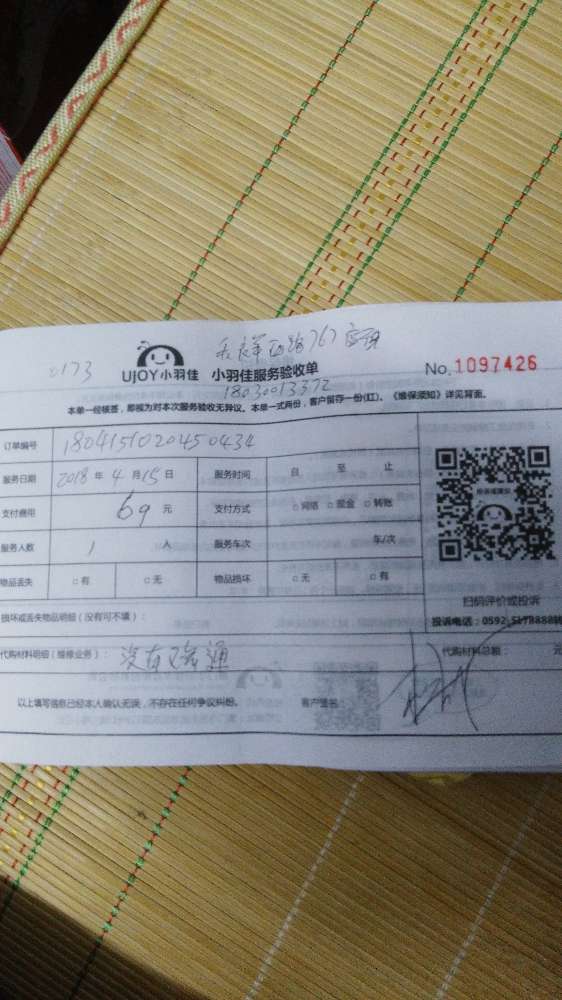 UJOY小羽佳 小羽佳服务验收单 No.1097426
18030013372
本单一经核签，即视为对本次服务验收无异议。本单一式两份，客户留存一份(红)。《维保须知》详见背面。
订单编号 1804151020450434
服务日期 2018年4月15日 服务时间 自 至 止
支付费用 69元 支付方式 □网络 □现金 □转账
服务人数 1人 服务车次 车/次
物品丢失 □有 □无 物品损坏 □无 □有
扫码评价或投诉
损坏或丢失物品明细（没有可不填）： 投诉电话：0592-5178888转
代购材料明细（维修业务）：没有疏通 代购材料总额： 元
以上填写信息已经本人确认无误，不存在任何争议纠纷。 客户签名：